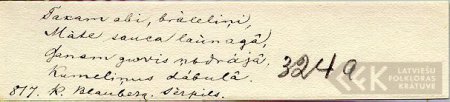 Takam abi, brāceliņi,
Māte sauca launagā,
Ganam govis
Kumeliņus dābulā.
817. K. Blauberg. Sērpils.
3249
LATVIEŠU
FOLKLORAS
KRĀTUVE